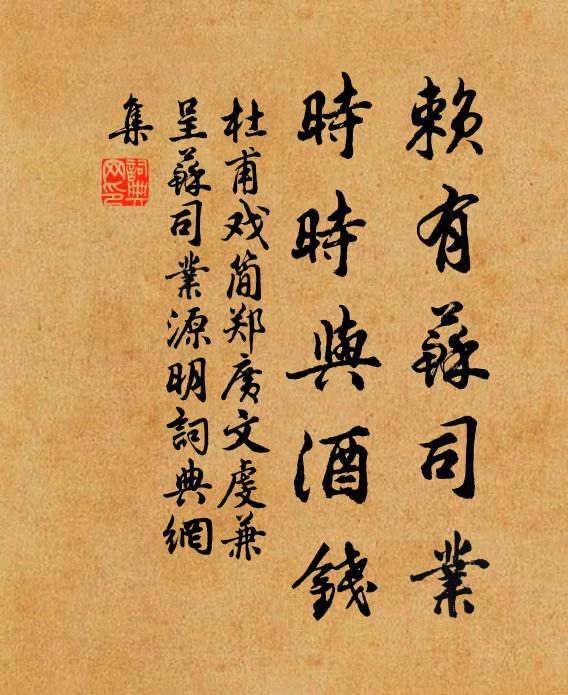 賴有蘇司業
時時與酒錢
杜甫戏简郑廣文虔兼
呈蘇司業源明詞典網
集
詞典网印